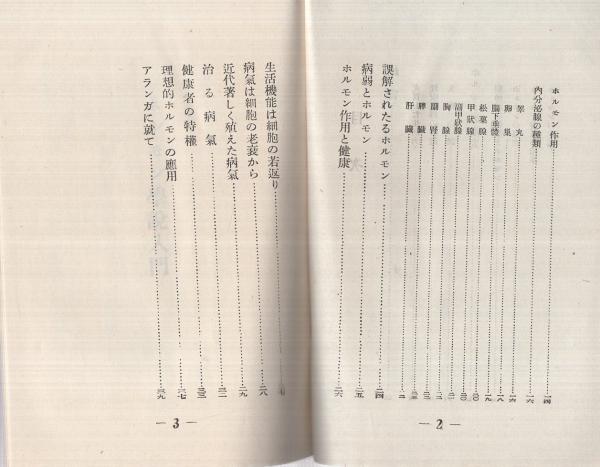 ホルモン作用……一四
内分泌線の種類……一六
睾丸……一六
卵巣……一八
腦下垂體……一九
松菓線……二〇
甲狀線……二〇
副甲狀線……二一
胸線……二一
副腎……二二
膵臓……二三
脾臓……
肝臓……
誤解されたるホルモン……二四
病弱とホルモン……二五
ホルモン作用と健康……二六
— 2 —
生活機能は細胞の若返り……
病氣は細胞の老衰から……二八
近代著しく殖えた病氣……二九
治る病氣……三二
健康者の特權……三三
理想的ホルモンの應用……三七
アランガに就て……三九
— 3 —